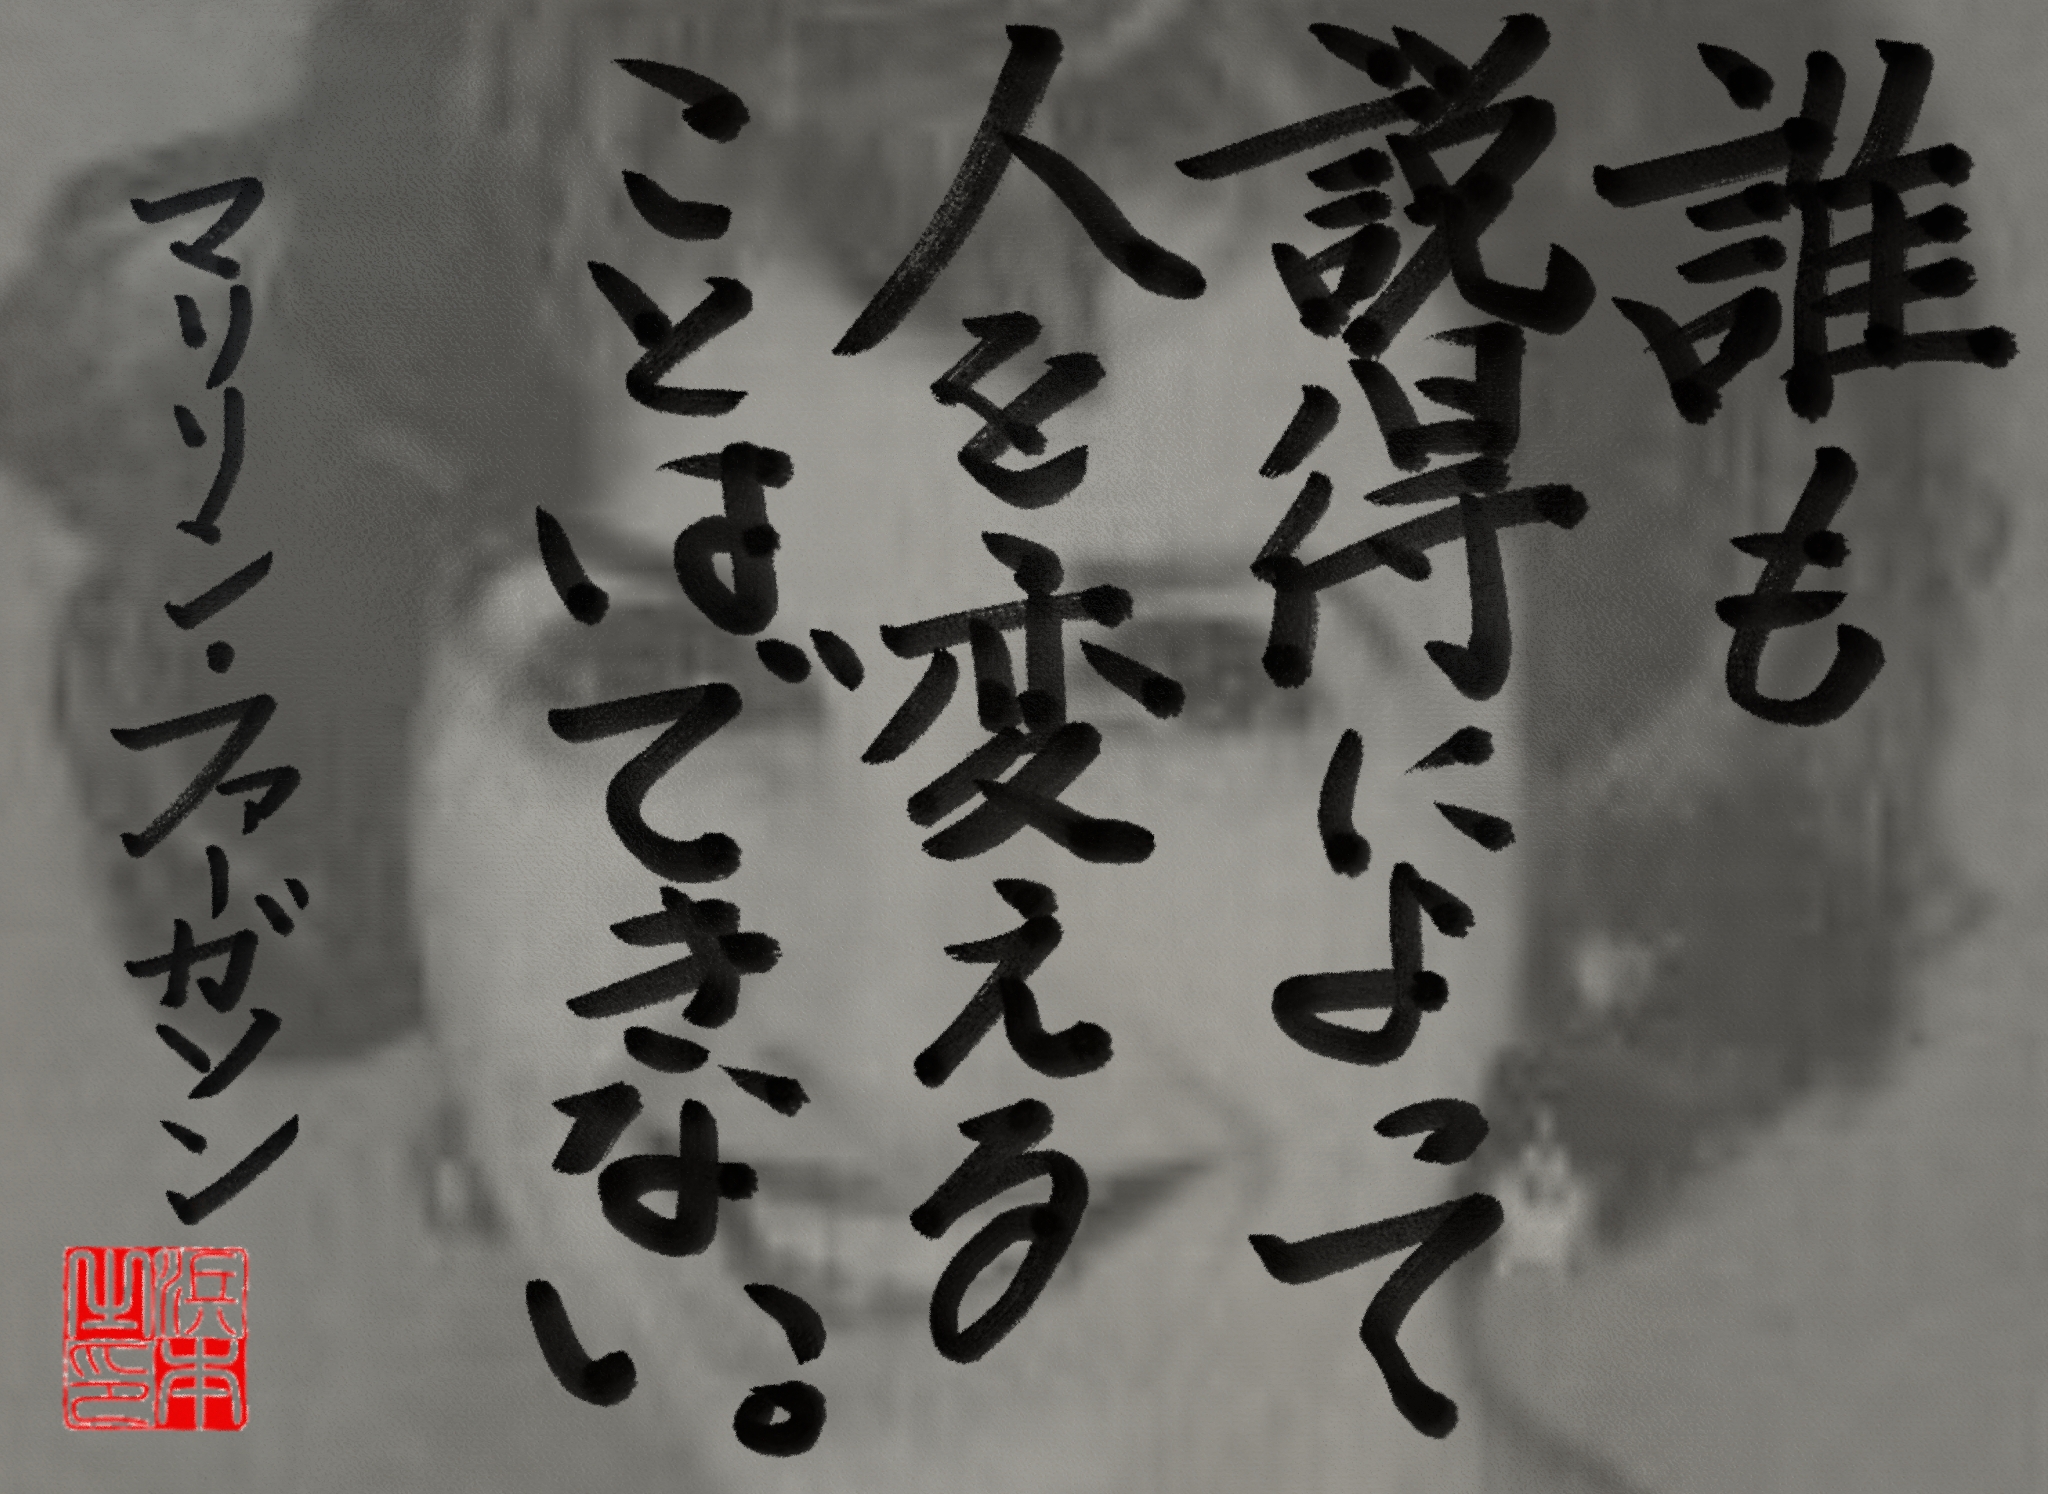 誰も
説得によって
人を変える
ことはできない。
マリリン・ファーガソン
浜本
之印